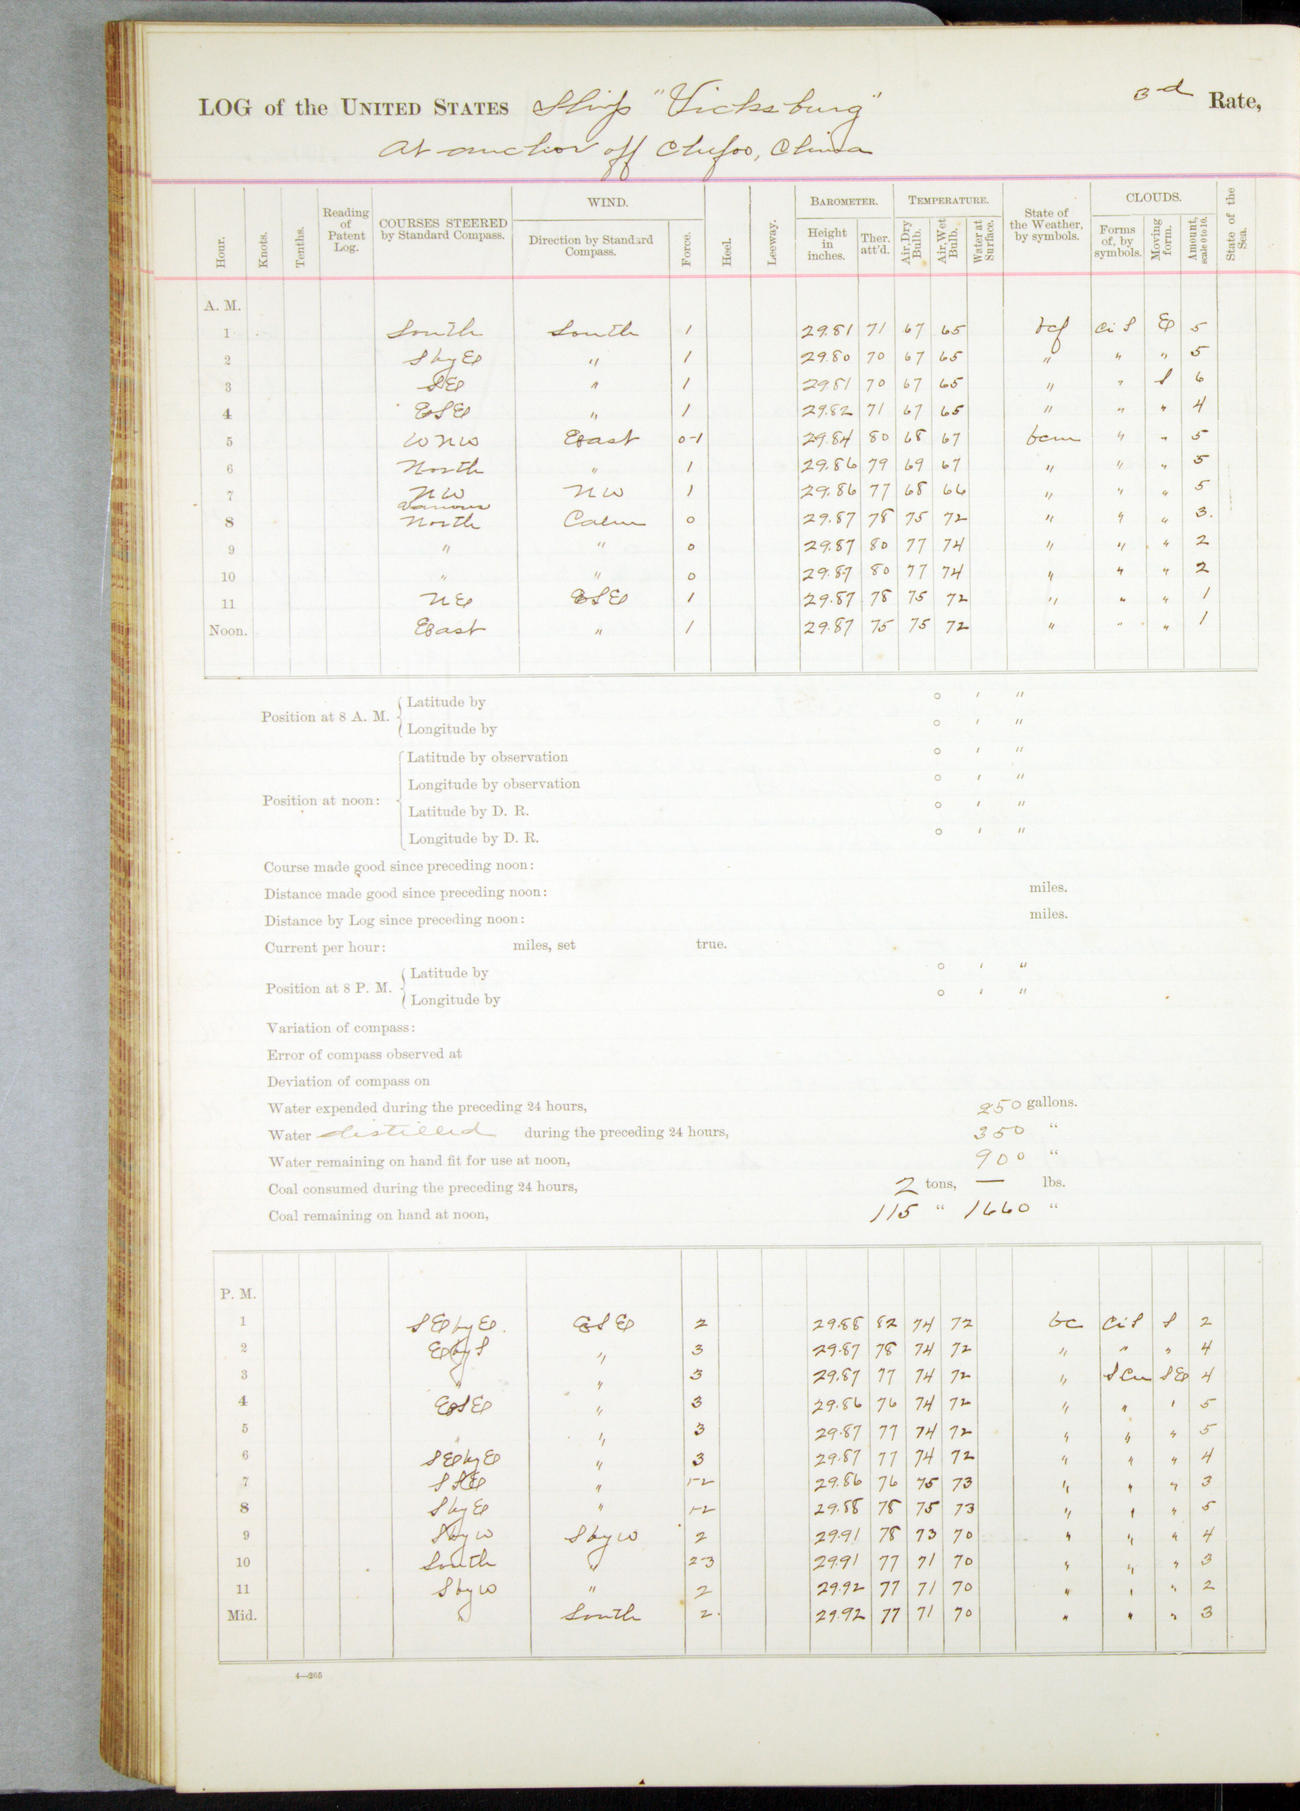 LOG of the UNITED STATES Ship "Vicksburg" 3rd Rate,
At anchor off Chefoo, China
Hour. Knots. Tenths. Reading of Patent Log. COURSES STEERED by Standard Compass. WIND. Direction by Standard Compass. Force. Heel. Leeway. BAROMETER. Height in inches. Ther. att'd. TEMPERATURE. Air, Dry Bulb. Air, Wet Bulb. Water at Surface. State of the Weather, by symbols. CLOUDS. Forms of, by symbols. Moving form. Amount, scale 0 to 10. State of the Sea.
A. M.
1 South South 1 29.81 71 67 65 bcf Ci S E 5
2 S by E " 1 29.80 70 67 65 " " " 5
3 SE " 1 29.81 70 67 65 " " S 6
4 ESE " 1 29.82 71 67 65 " " " 4
5 WNW East 0-1 29.84 80 68 67 bcm " " 5
6 North " 1 29.86 79 69 67 " " " 5
7 NW NW 1 29.86 77 68 66 " " " 5
Various
8 North Calm 0 29.87 78 75 72 " " " 3.
9 " " 0 29.87 80 77 74 " " " 2
10 " " 0 29.87 80 77 74 " " " 2
11 NE ESE 1 29.87 78 75 72 " " " 1
Noon. East " 1 29.87 75 75 72 " " " 1
Position at 8 A. M. { Latitude by ° ' "
Longitude by ° ' "
Position at noon: { Latitude by observation ° ' "
Longitude by observation ° ' "
Latitude by D. R. ° ' "
Longitude by D. R. ° ' "
Course made good since preceding noon:
Distance made good since preceding noon: miles.
Distance by Log since preceding noon: miles.
Current per hour: miles, set true.
Position at 8 P. M. { Latitude by ° ' "
Longitude by ° ' "
Variation of compass:
Error of compass observed at
Deviation of compass on
Water expended during the preceding 24 hours, 250 gallons.
Water distilled during the preceding 24 hours, 350 "
Water remaining on hand fit for use at noon, 900 "
Coal consumed during the preceding 24 hours, 2 tons, — lbs.
Coal remaining on hand at noon, 115 " 1660 "
P. M.
1 SE by E. ESE 2 29.88 82 74 72 bc Ci S S 2
2 E by S " 3 29.87 78 74 72 " " " 4
3 " " 3 29.87 77 74 72 " S Cu SE 4
4 ESE " 3 29.86 76 74 72 " " ' 5
5 " " 3 29.87 77 74 72 " " " 5
6 SE by E " 3 29.87 77 74 72 " " " 4
7 SSE " 1-2 29.86 76 75 73 " " " 3
8 S by E " 1-2 29.88 78 75 73 " " " 5
9 S by W S by W 2 29.91 78 73 70 " " " 4
10 South " 2-3 29.91 77 71 70 " " " 3
11 S by W " 2 29.92 77 71 70 " " " 2
Mid. " South 2. 29.92 77 71 70 " " " 3
4—265